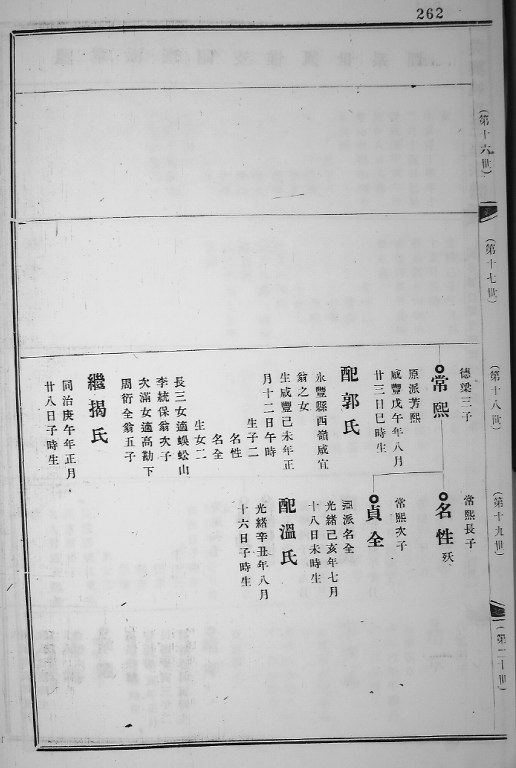 262
(第十六世)
(第十七世)
(第十八世)
(第十九世)
(第二十世)
德梁三子
常熙
原派芳熙
咸豐戊午年八月
廿三日巳時生
配郭氏
永豐縣西嶺咸宜
翁之女
生咸豐己未年正
月十二日午時
生子二
名性
名全
生女二
長三女適蜈蚣山
李統保翁次子
次滿女適高勘下
周衍全翁五子
繼揭氏
同治庚午年正月
廿八日子時生
常熙長子
名性 殀
常熙次子
貞全
原派名全
光緒己亥年七月
十八日未時生
配溫氏
光緒辛丑年八月
十六日子時生